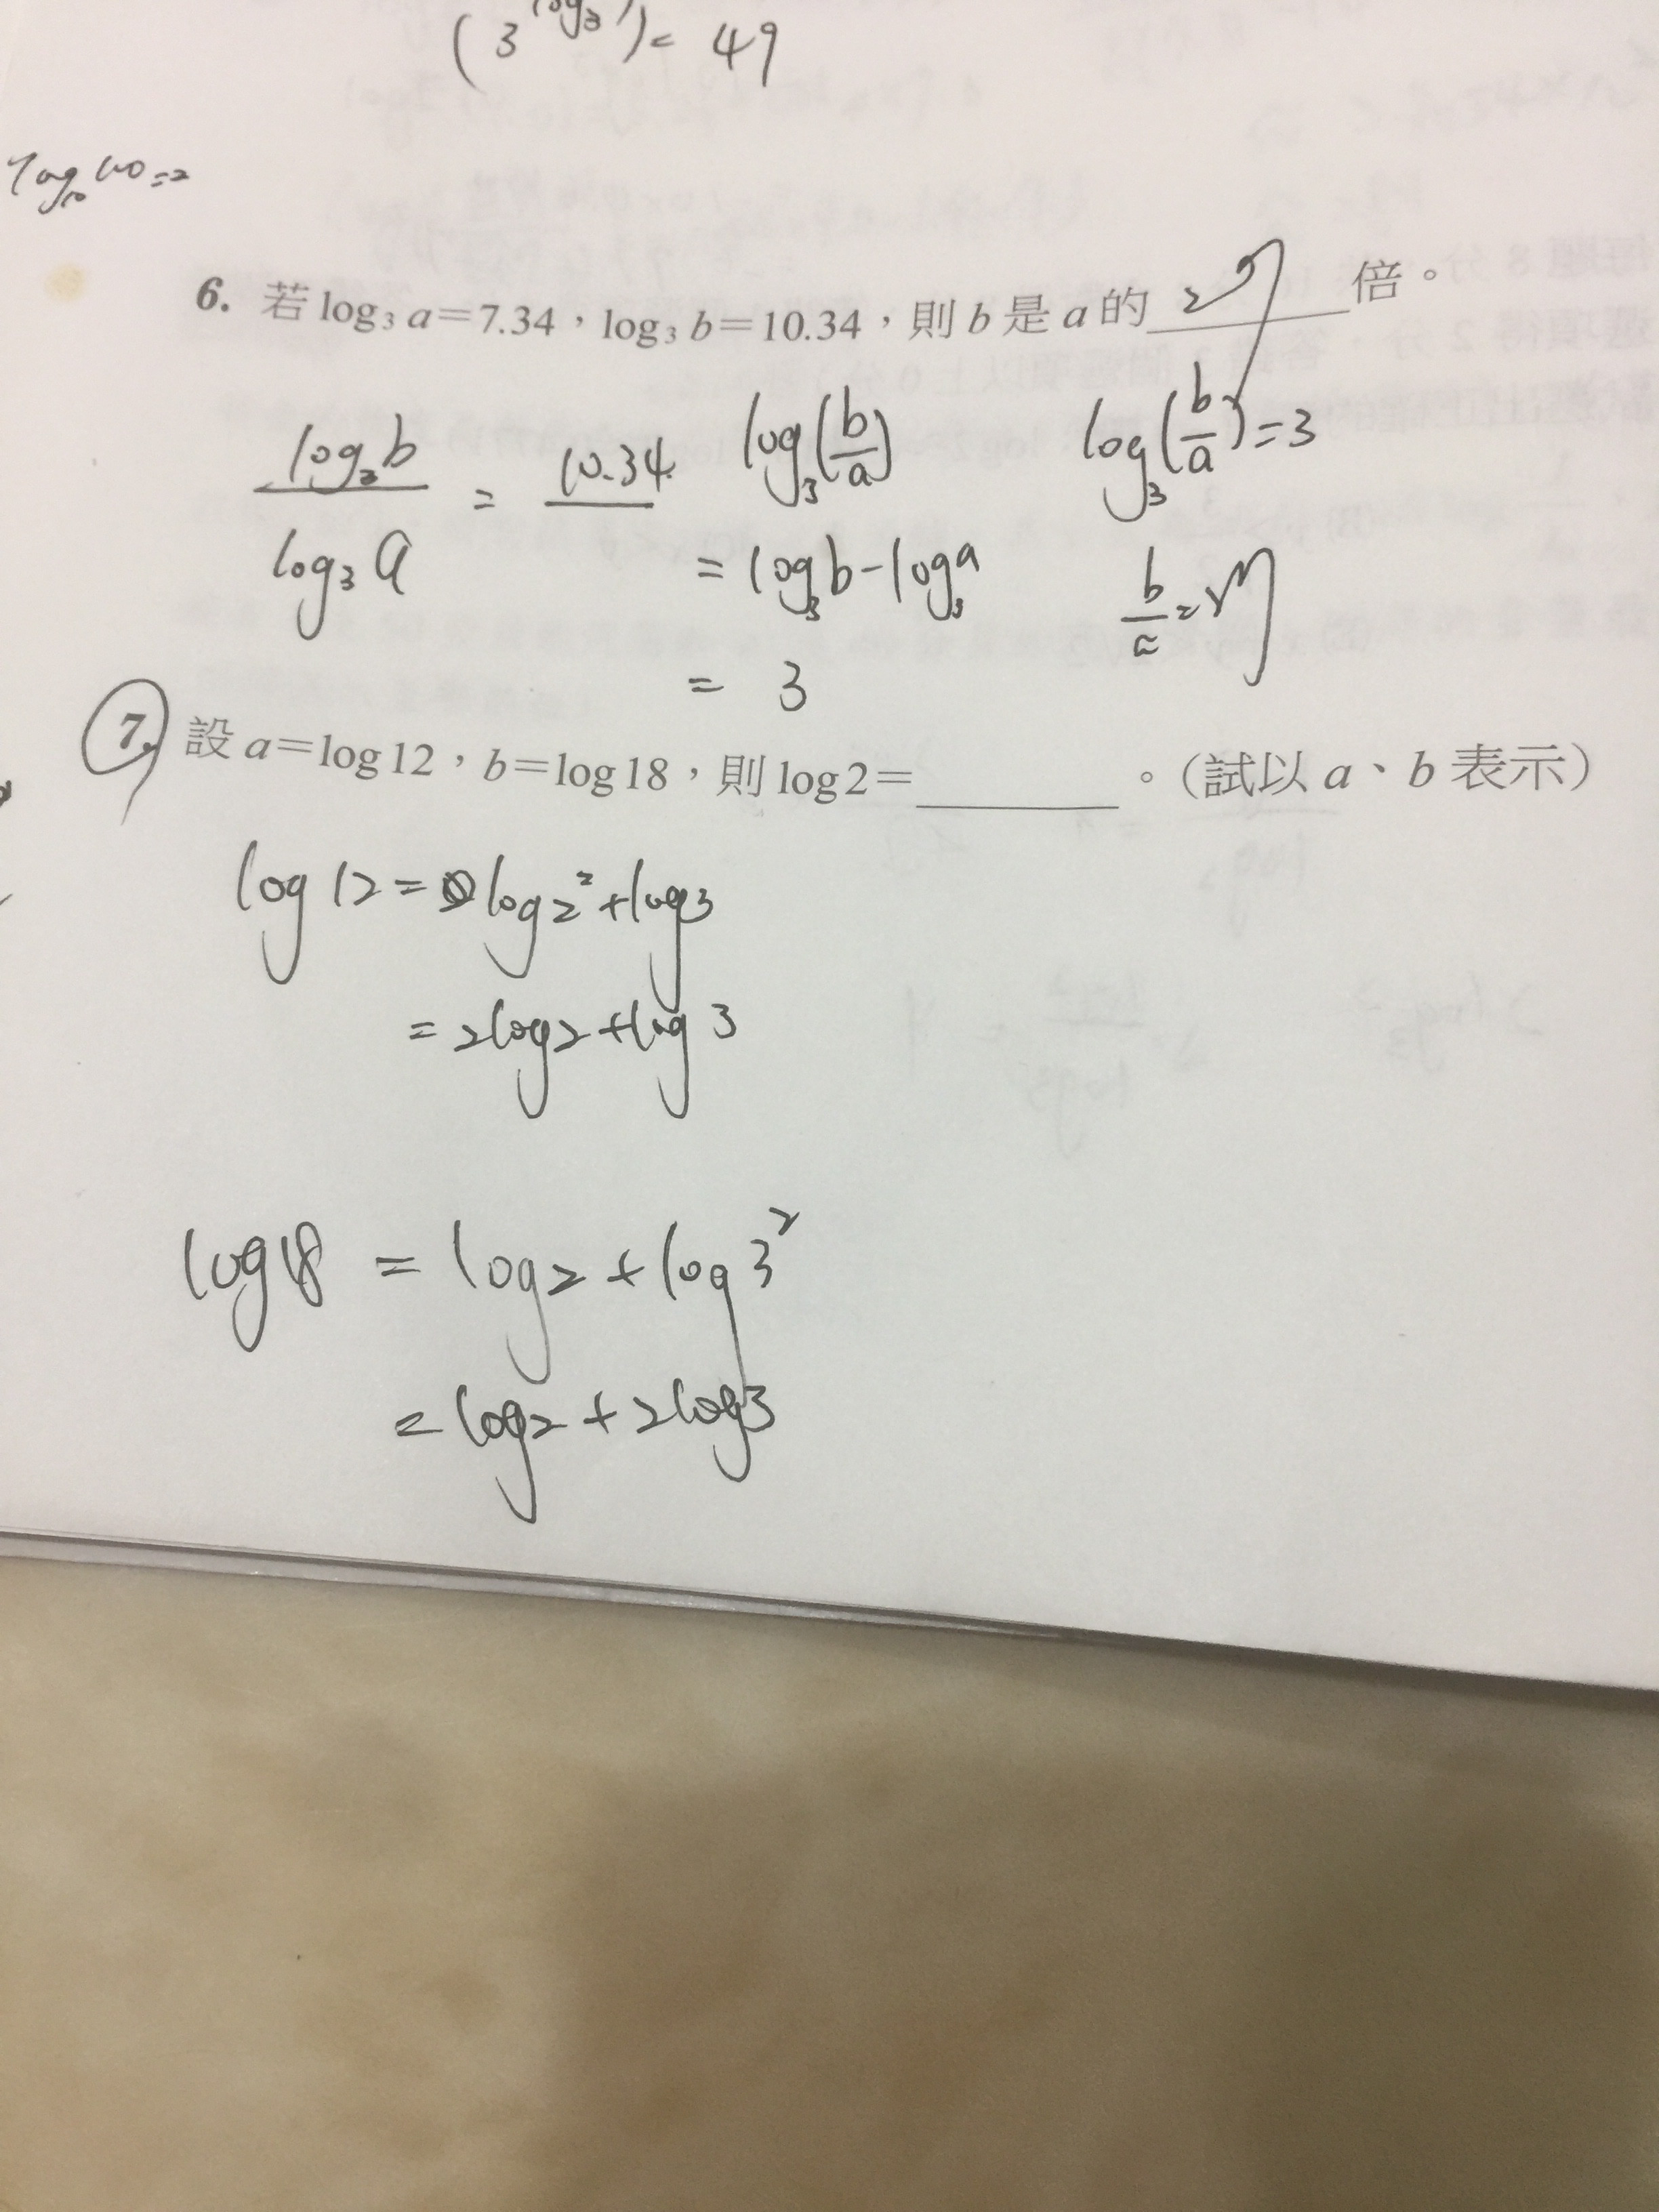 (3^log₃ ) = 49
log₁₀100=2
6. 若 log₃ a=7.34，log₃ b=10.34，則 b 是 a 的 27 倍。
log₃b / log₃a = 10.34 /
log₃(b/a)
= log₃b - log₃a
= 3
log₃(b/a)=3
b/a=27
7. 設 a=log12，b=log18，則 log2=________。（試以 a、b 表示）
log 12 = log2² + log3
= 2log2 + log 3
log18 = log2 + log 3²
= log2 + 2log3